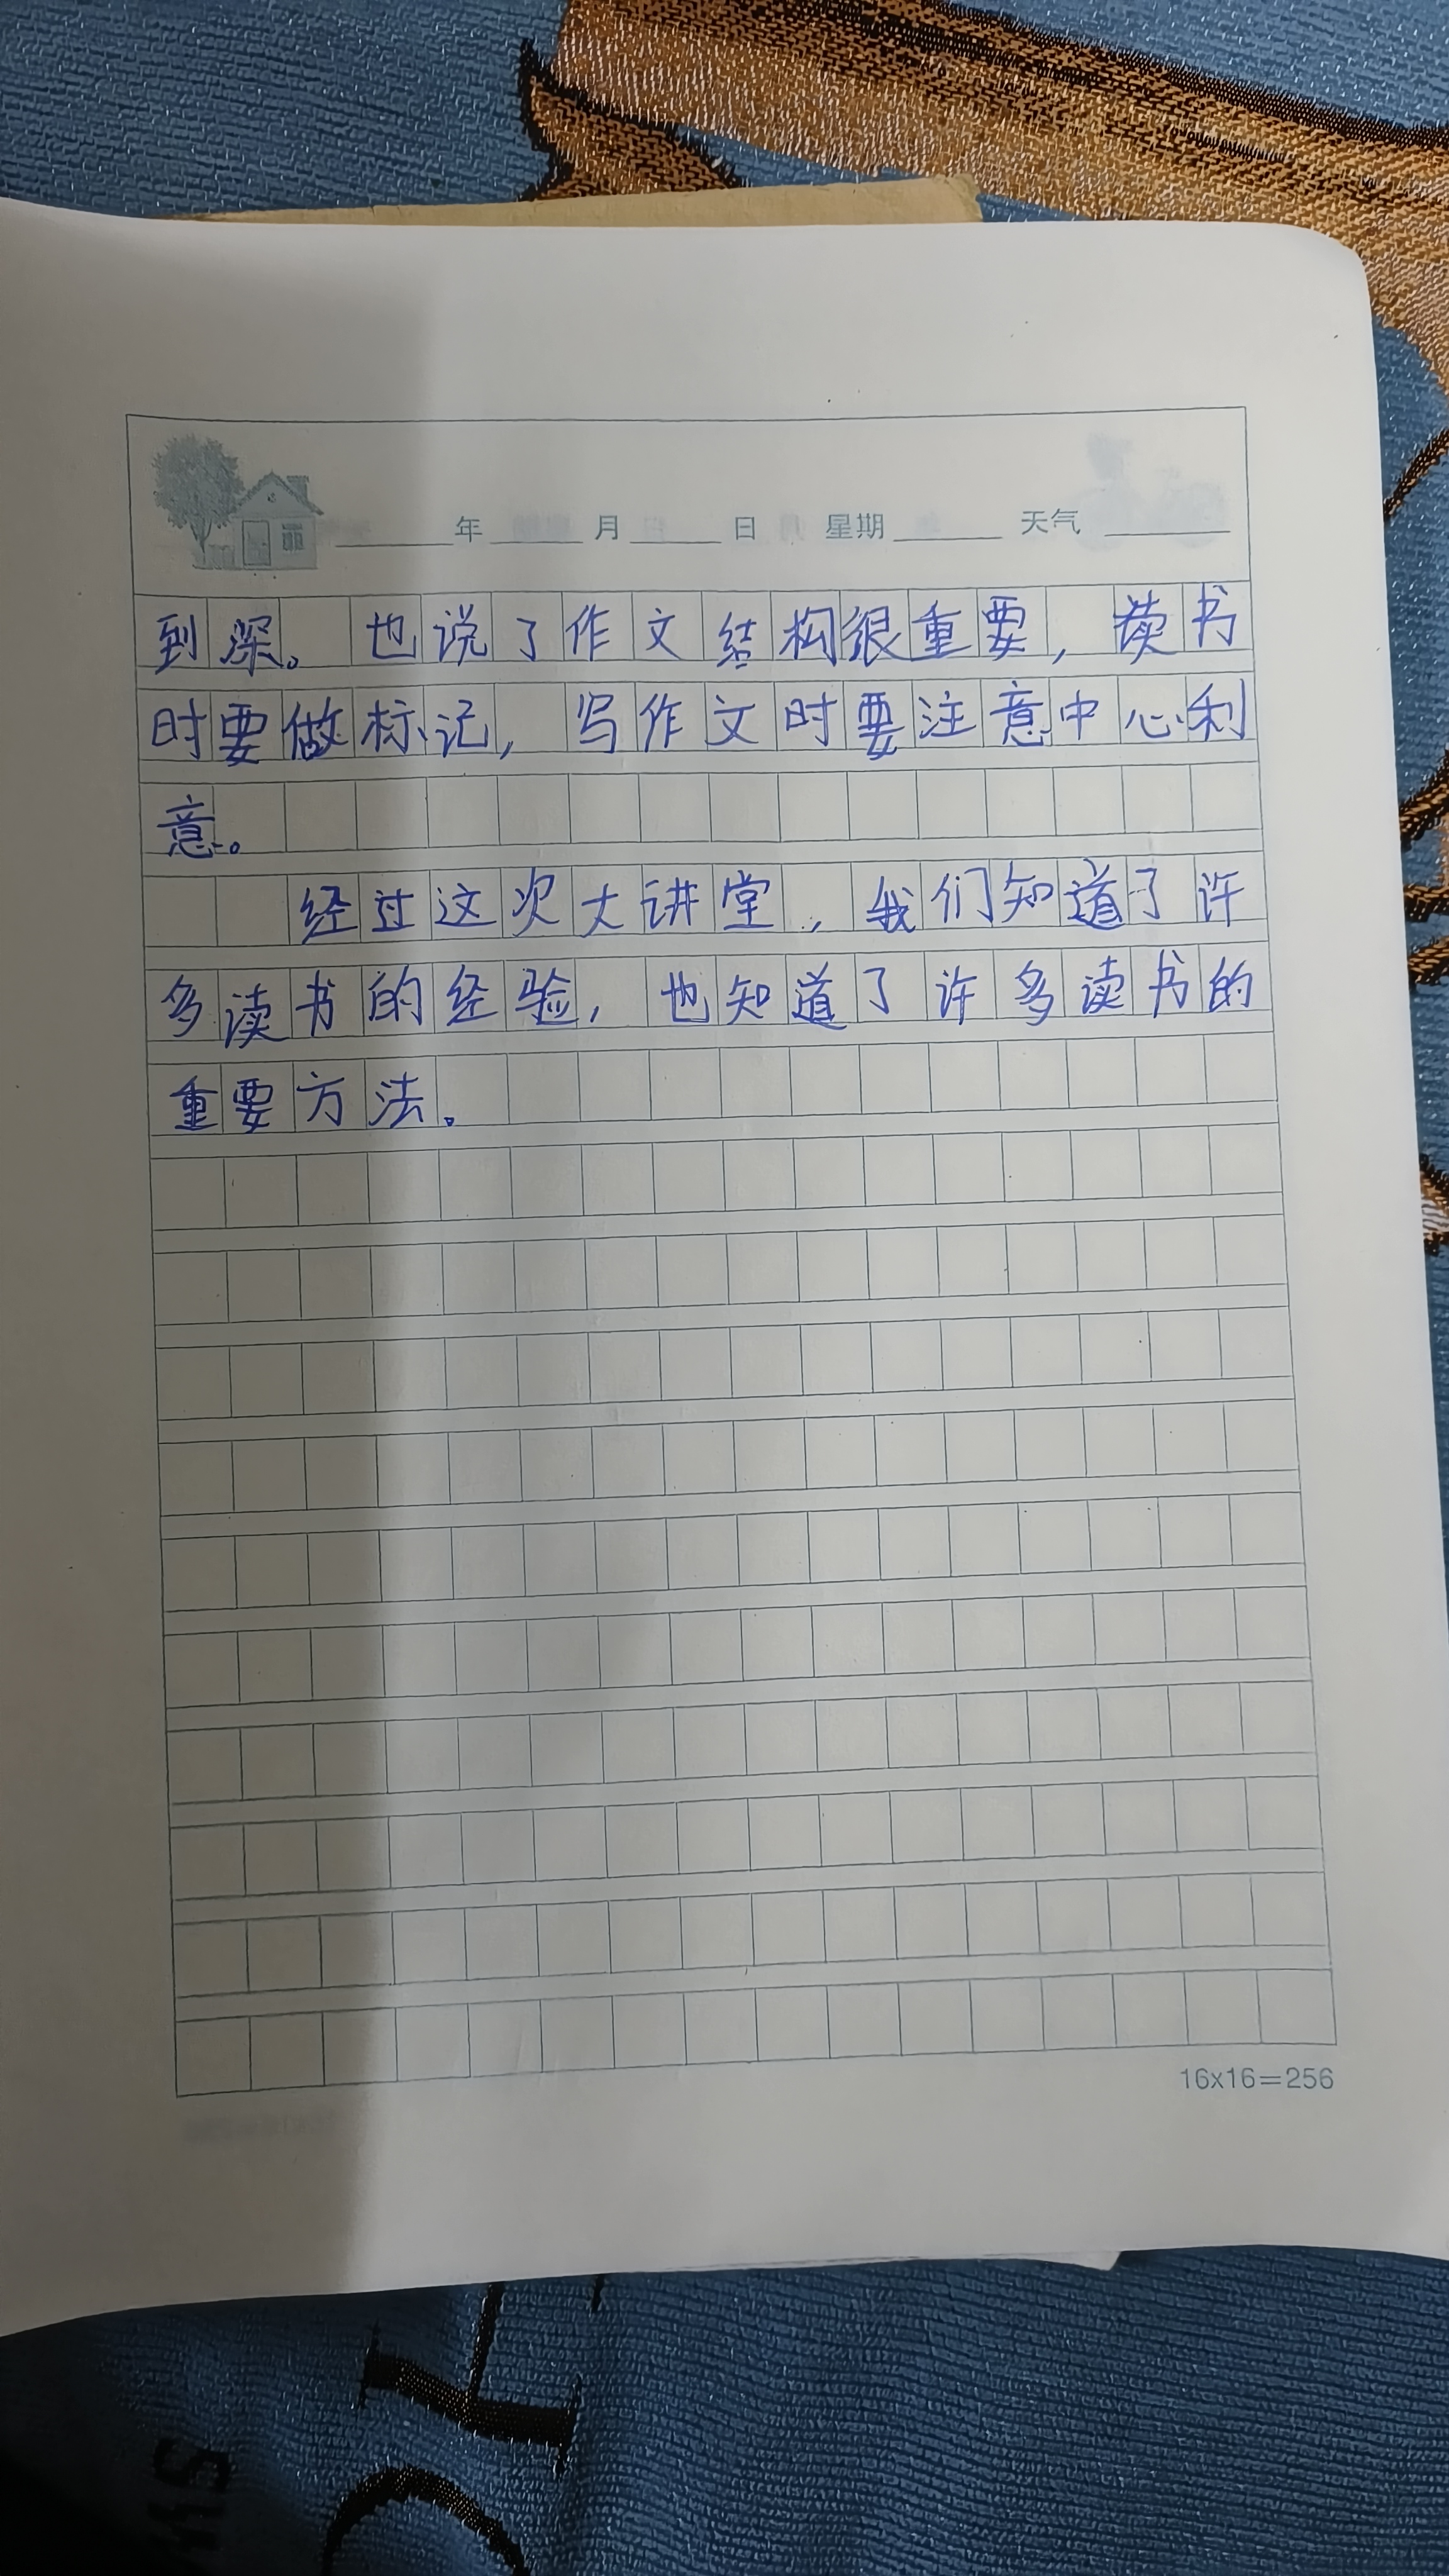 年 月 日 星期 天气
到深。也说了作文结构很重要，读书
时要做标记，写作文时要注意中心利
意。
经过这次大讲堂，我们知道了许
多读书的经验，也知道了许多读书的
重要方法。
16x16=256